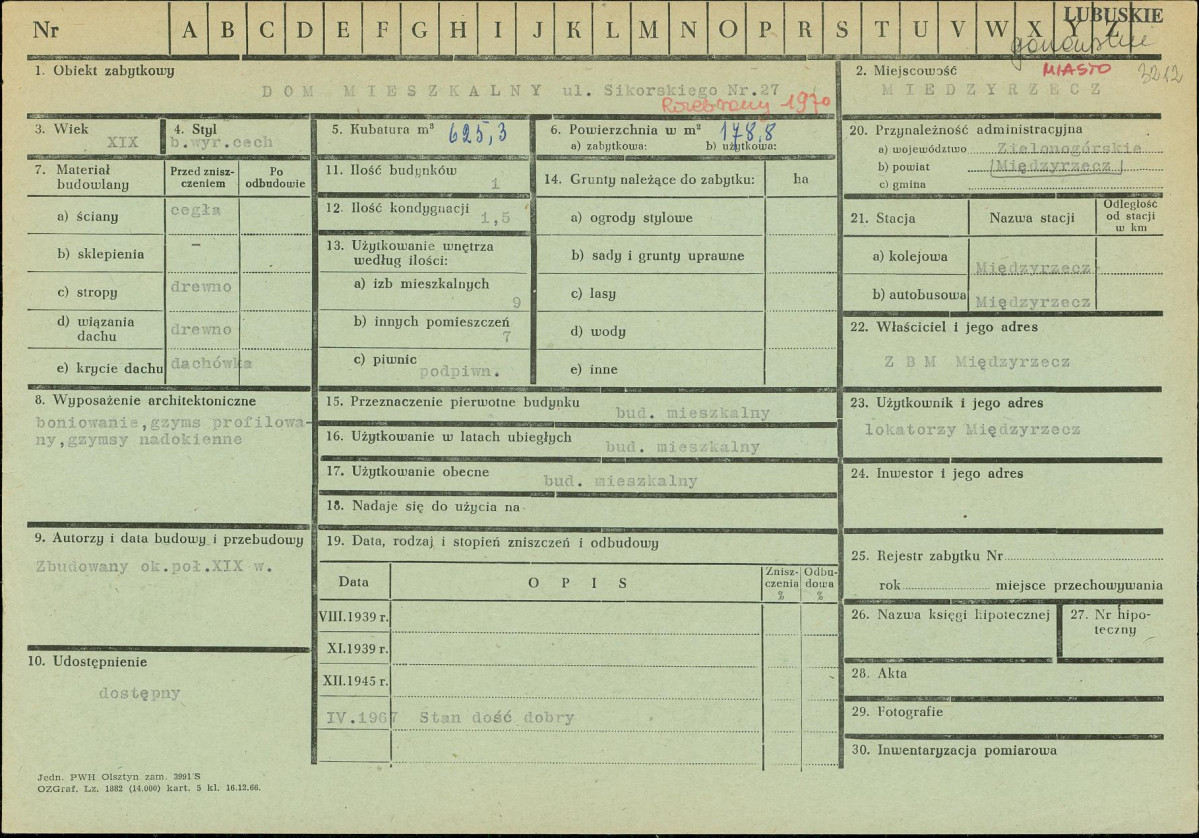 Nr A B C D E F G H I J K L M N O P R S T U V W X Y Z LUBUSKIE
gorzowskie
1. Obiekt zabytkowy
DOM MIESZKALNY ul. Sikorskiego Nr.27
Rozebrany 1970
2. Miejscowość MIASTO 3212
MIEDZYRZECZ
3. Wiek
XIX
4. Styl
b.wyr.cech
5. Kubatura m³ 625,3
6. Powierzchnia w m² 178,8
a) zabytkowa: b) użytkowa:
7. Materiał budowlany
Przed zniszczeniem
Po odbudowie
a) ściany cegła
b) sklepienia –
c) stropy drewno
d) wiązania dachu drewno
e) krycie dachu dachówka
8. Wyposażenie architektoniczne
boniowanie,gzyms profilowa-
ny,gzymsy nadokienne
9. Autorzy i data budowy i przebudowy
Zbudowany ok.poł.XIX w.
10. Udostępnienie
dostępny
11. Ilość budynków
1
12. Ilość kondygnacji
1,5
13. Użytkowanie wnętrza
według ilości:
a) izb mieszkalnych
9
b) innych pomieszczeń
7
c) piwnic
podpiwn.
14. Grunty należące do zabytku: ha
a) ogrody stylowe
b) sady i grunty uprawne
c) lasy
d) wody
e) inne
15. Przeznaczenie pierwotne budynku
bud. mieszkalny
16. Użytkowanie w latach ubiegłych
bud. mieszkalny
17. Użytkowanie obecne
bud. mieszkalny
18. Nadaje się do użycia na
19. Data, rodzaj i stopień zniszczeń i odbudowy
Data OPIS Znisz-
czenia
% Odbu-
dowa
%
VIII.1939 r.
XI.1939 r.
XII.1945 r.
IV.1967 Stan dość dobry
20. Przynależność administracyjna
a) województwo Zielonogórskie
b) powiat (Międzyrzecz)
c) gmina
21. Stacja Nazwa stacji Odległość
od stacji
w km
a) kolejowa Międzyrzecz
b) autobusowa Międzyrzecz
22. Właściciel i jego adres
Z B M Międzyrzecz
23. Użytkownik i jego adres
lokatorzy Międzyrzecz
24. Inwestor i jego adres
25. Rejestr zabytku Nr
rok miejsce przechowywania
26. Nazwa księgi hipotecznej
27. Nr hipo-
teczny
28. Akta
29. Fotografie
30. Inwentaryzacja pomiarowa
Jedn. PWH Olsztyn zam. 3991/S
OZGraf. Lz. 1882 (14.000) kart. 5 kl. 16.12.66.